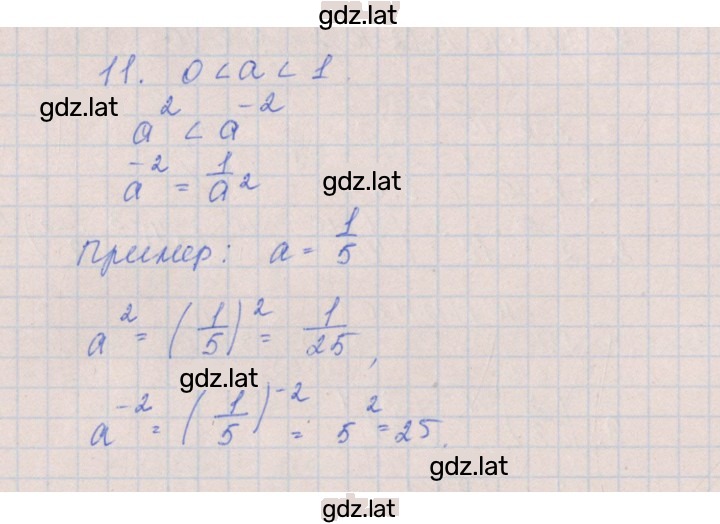 gdz.lat
11. 0 < a < 1
gdz.lat
a² < a⁻²
a⁻² = 1/a²
gdz.lat
Пример: a = 1/5
a² = (1/5)² = 1/25,
gdz.lat
a⁻² = (1/5)⁻² = 5² = 25.
gdz.lat
gdz.lat